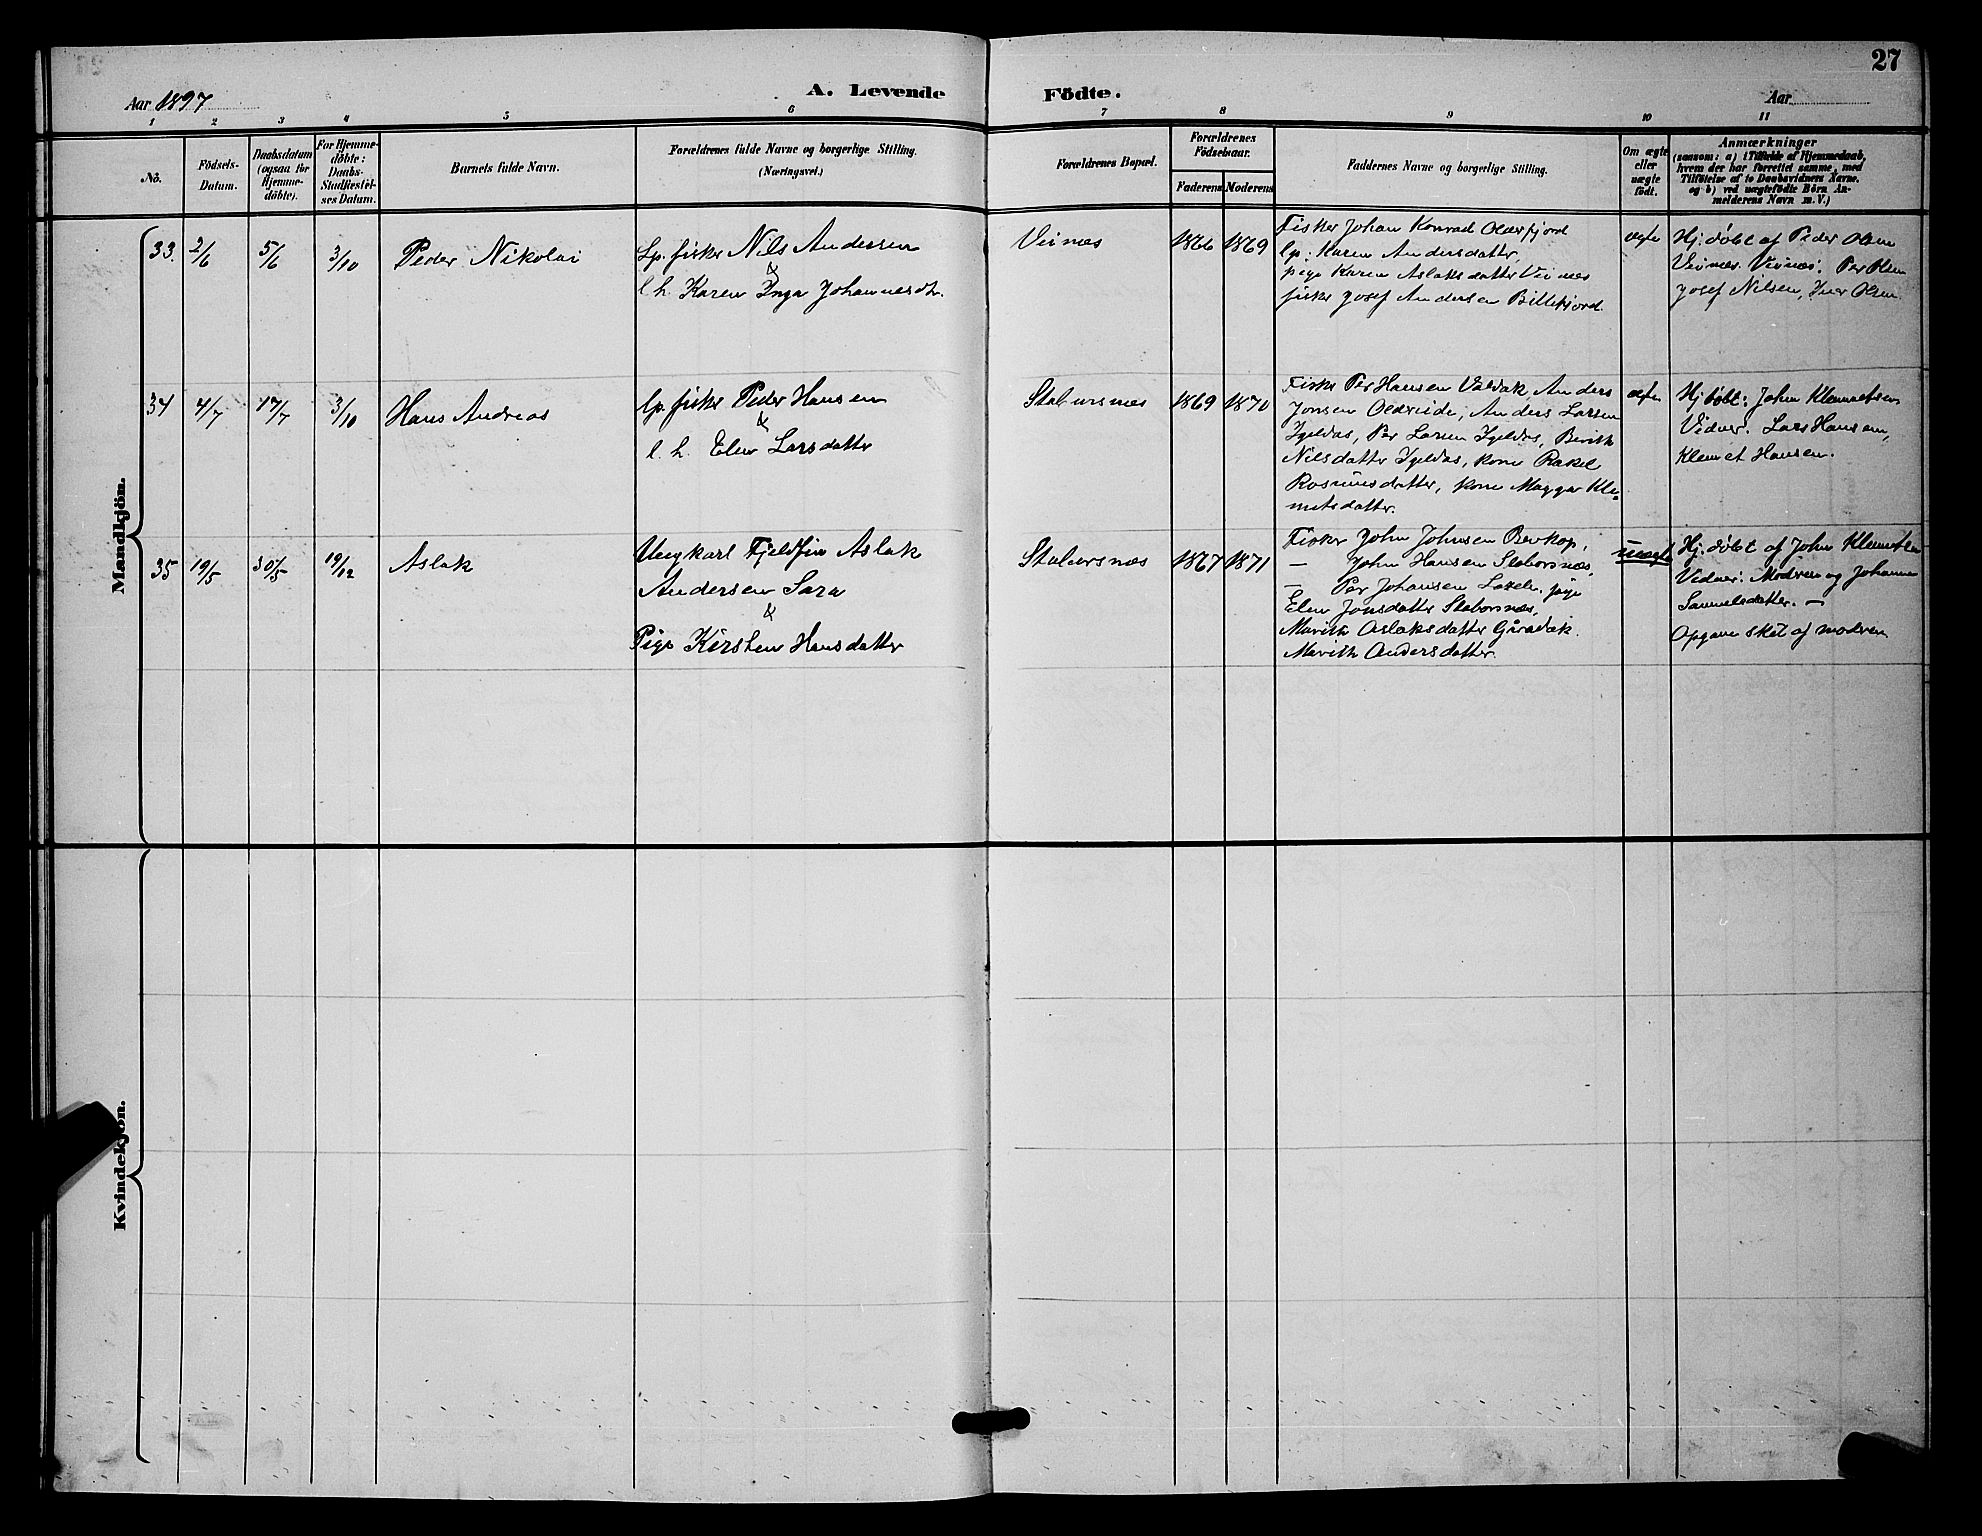 27
Aar 1897
A. Levende Födte.
Aar
1 2 3 4 5 6 7 8 9 10 11
No.
Födsels-Datum.
Daabsdatum (ogsaa for Hjemme-döbte).
For Hjemme-döbte: Daabs-Stadfæstel-ses Datum.
Barnets fulde Navn.
Forældrenes fulde Navne og borgerlige Stilling.
(Næringsvei.)
Forældrenes Bopæl.
Forældrenes Födselsaar.
Faderens Moderens
Faddernes Navne og borgerlige Stilling.
Om ægte eller uægte födt.
Anmærkninger
(saasom: a) i Tilfælde af Hjemmedaab, hvem der har forrettet samme, med Tilföielse af to Daabsvidners Navne, og b) ved uægtefödte Börn Anmelderens Navn m. V.)
Mandkjön.
33. 2/6 5/6 3/10 Peder Nikolai
Lp. fisker Nils Andersen
&
l. h. Karen Inga Johannesdtr.
Veinæs 1866 1869
Fisker Johan Konrad Olderfjord
lp: Karen Andersdatter,
pige Karen Aslaksdatter Veinæs
fisker Josef Andersen Billefjord.
ægte
Hj. döbt af Peder Olsen
Veinæs. Vidner: Per Olsen
Josef Nilsen, Iver Olsen.
34 4/7 17/7 3/10 Hans Andreas
lp. fisker Peder Hansen
&
l. h. Elen Larsdatter
Stabursnæs 1869 1870
Fisker Per Hansen Valdak, Anders
Jonsen Oldereide, Anders Larsen
Igeldas, Per Larsen Igeldas, Berith
Nilsdatter Igeldas, kone Rakel
Rasmusdatter, kone Magga Kle-
metsdatter.
ægte
Hj döbt: John Klemetsen
Vidner: Lars Hansen,
Klemet Hansen.
35 19/5 30/5 19/12 Aslak
Ungkarl Fjeldfin Aslak
Andersen Sara
&
Pige Kirsten Hansdatter
Stabursnæs 1867 1871
Fisker John Johnsen
— John Hansen Staborsnæs,
— Per Johansen pige
Elen Jonsdatter Staborsnæs,
Marith Aslaksdatter
Marith Andersdatter.
uægte
Hj. döbt af John Klemetsen
Vidner: Modren og Johanna
Samuelsdatter. —
Opgave sket af modren
Kvindekjön.